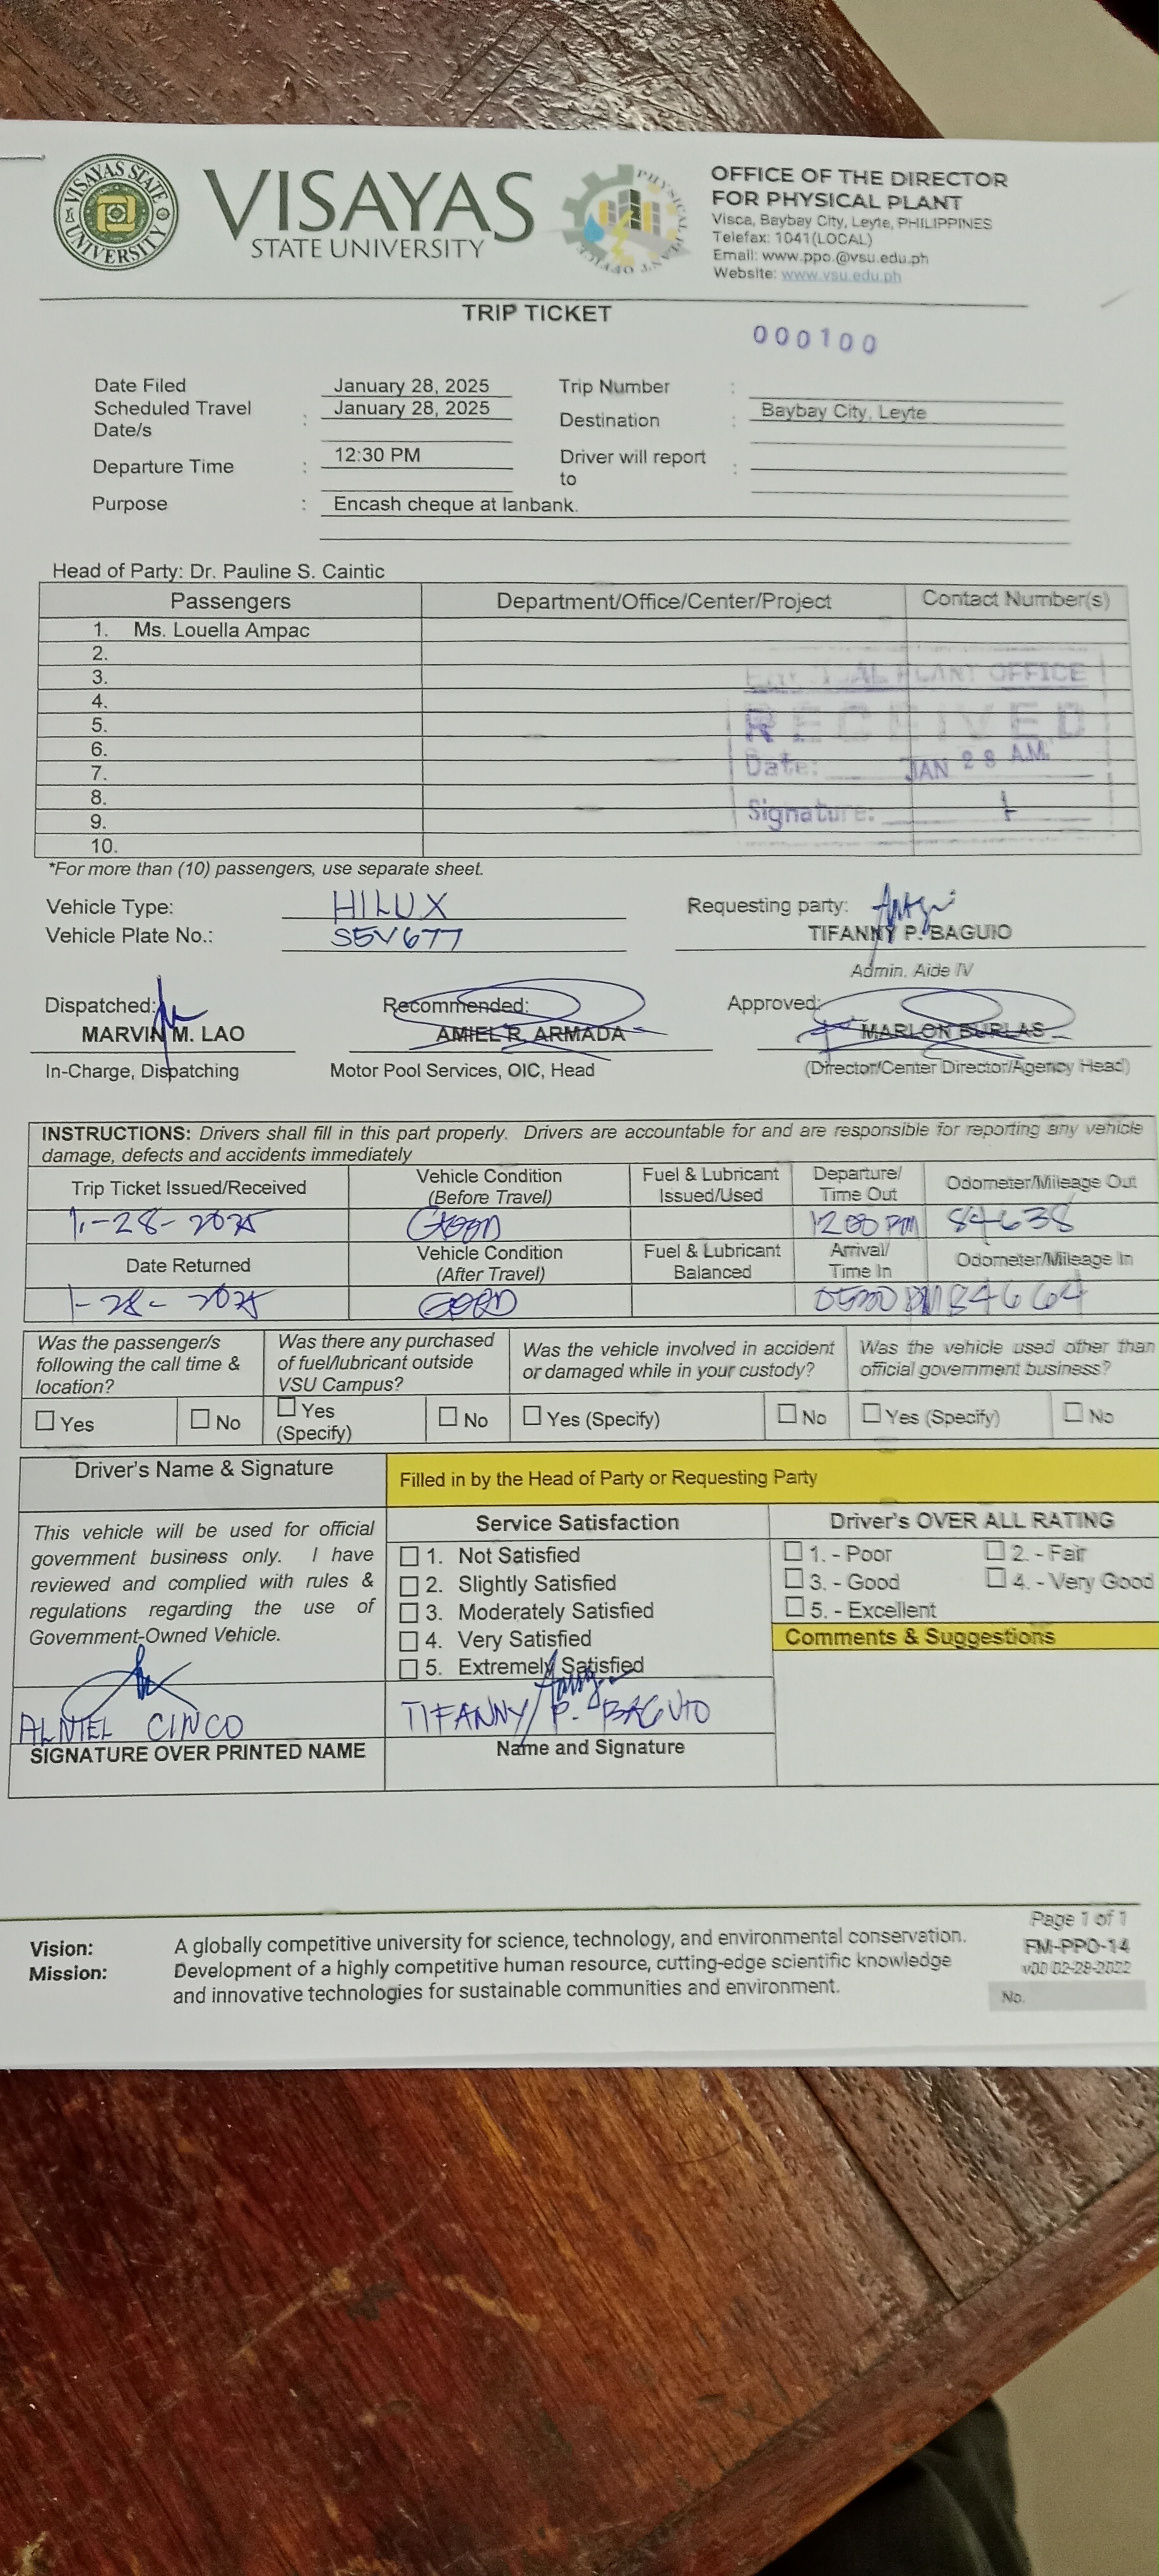 VISAYAS STATE UNIVERSITY
VISAYAS
STATE UNIVERSITY
PHYSICAL PLANT OFFICE
OFFICE OF THE DIRECTOR
FOR PHYSICAL PLANT
Visca, Baybay City, Leyte, PHILIPPINES
Telefax: 1041(LOCAL)
Email: www.ppo.@vsu.edu.ph
Website: www.vsu.edu.ph
TRIP TICKET
000100
Date Filed January 28, 2025 Trip Number :
Scheduled Travel Date/s : January 28, 2025 Destination : Baybay City, Leyte
Departure Time : 12:30 PM Driver will report to :
Purpose : Encash cheque at lanbank.
Head of Party: Dr. Pauline S. Caintic
Passengers Department/Office/Center/Project Contact Number(s)
1. Ms. Louella Ampac
2.
3.
4.
5.
6.
7.
8.
9.
10.
PLANT OFFICE
RECEIVED
Date: JAN 28 A.M.
Signature:
*For more than (10) passengers, use separate sheet.
Vehicle Type: HILUX Requesting party:
Vehicle Plate No.: S5V677 TIFANNY P. BAGUIO
Admin. Aide IV
Dispatched: Recommended: Approved:
MARVIN M. LAO AMIEL R. ARMADA MARLON BURLAS
In-Charge, Dispatching Motor Pool Services, OIC, Head (Director/Center Director/Agency Head)
INSTRUCTIONS: Drivers shall fill in this part properly. Drivers are accountable for and are responsible for reporting any vehicle
damage, defects and accidents immediately
Trip Ticket Issued/Received Vehicle Condition (Before Travel) Fuel & Lubricant Issued/Used Departure/ Time Out Odometer/Mileage Out
1-28-2025 GOOD 1200 PM 84638
Date Returned Vehicle Condition (After Travel) Fuel & Lubricant Balanced Arrival/ Time In Odometer/Mileage In
1-28-2025 GOOD 84664
Was the passenger/s following the call time & location? Was there any purchased of fuel/lubricant outside VSU Campus? Was the vehicle involved in accident or damaged while in your custody? Was the vehicle used other than official government business?
Yes No Yes (Specify) No Yes (Specify) No Yes (Specify) No
Driver's Name & Signature Filled in by the Head of Party or Requesting Party
This vehicle will be used for official
government business only. I have
reviewed and complied with rules &
regulations regarding the use of
Government-Owned Vehicle.
Service Satisfaction
1. Not Satisfied
2. Slightly Satisfied
3. Moderately Satisfied
4. Very Satisfied
5. Extremely Satisfied
Driver's OVER ALL RATING
1. - Poor 2. - Fair
3. - Good 4. - Very Good
5. - Excellent
Comments & Suggestions
ALNIEL CINCO TIFANNY P. BAGUIO
SIGNATURE OVER PRINTED NAME Name and Signature
Vision: A globally competitive university for science, technology, and environmental conservation.
Mission: Development of a highly competitive human resource, cutting-edge scientific knowledge
and innovative technologies for sustainable communities and environment.
Page 1 of 1
FM-PPO-14
v00 02-28-2022
No.